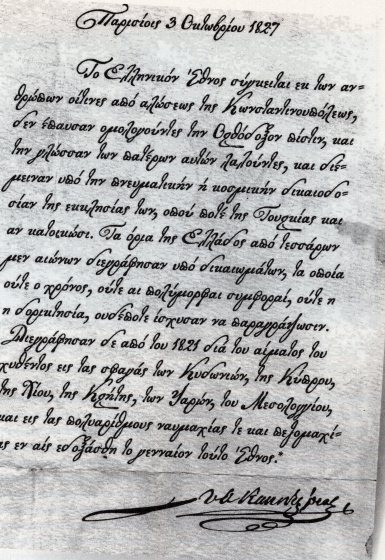 Παρισίοις 3 Οκτωβρίου 1827
Το Ελληνικόν Έθνος σύγκειται εκ των αν-
θρώπων οίτινες από αλώσεως της Κωνσταντινουπόλεως,
δεν έπαυσαν ομολογούντες την Ορθόδοξον πίστιν, και
την γλώσσαν των πατέρων αυτών λαλούντες, και διέ-
μειναν υπό την πνευματικήν ή κοσμικήν δικαιοδο-
σίαν της εκκλησίας των, οπού ποτέ της Τουρκίας και
αν κατοικώσι. Τα όρια της Ελλάδος από τεσσάρων
μεν αιώνων διεγράφησαν υπό δικαιωμάτων, τα οποία
ούτε ο χρόνος, ούτε αι πολύμορφαι συμφοραί, ούτε η
η δορικτησία, ουδέποτε ίσχυσαν να παραγράψωσιν.
Διεγράφησαν δε από του 1821 δια του αίματος του
χυθέντος εις τας σφαγάς των Κυδωνιών, της Κύπρου,
της Χίου, της Κρήτης, των Ψαρών, του Μεσολογγίου,
και εις τας πολυαρίθμους ναυμαχίας τε και πεζομαχί-
ας εν αίς εδοξάσθη το γενναίον τούτο Έθνος."